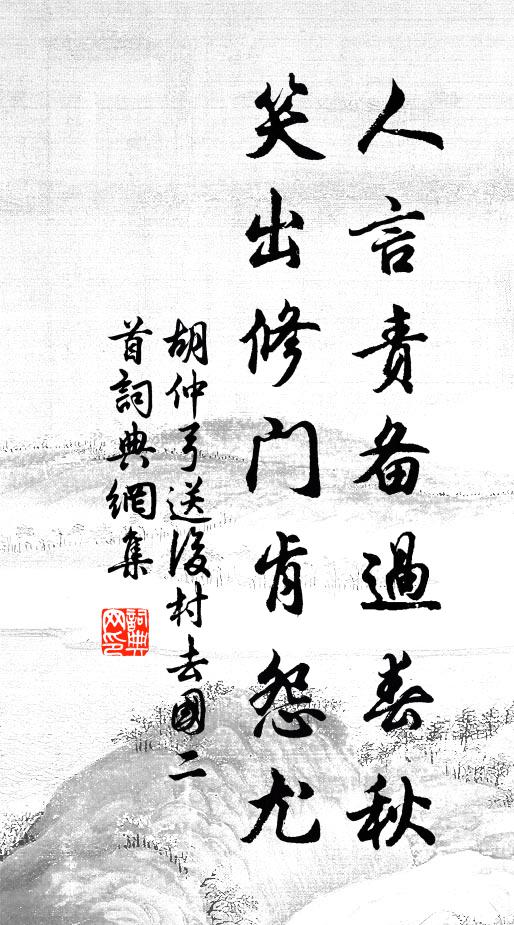 人言责备過春秋
笑出修门肯怨尤
胡仲弓送後村去國二
首詞典網集
詞典网印